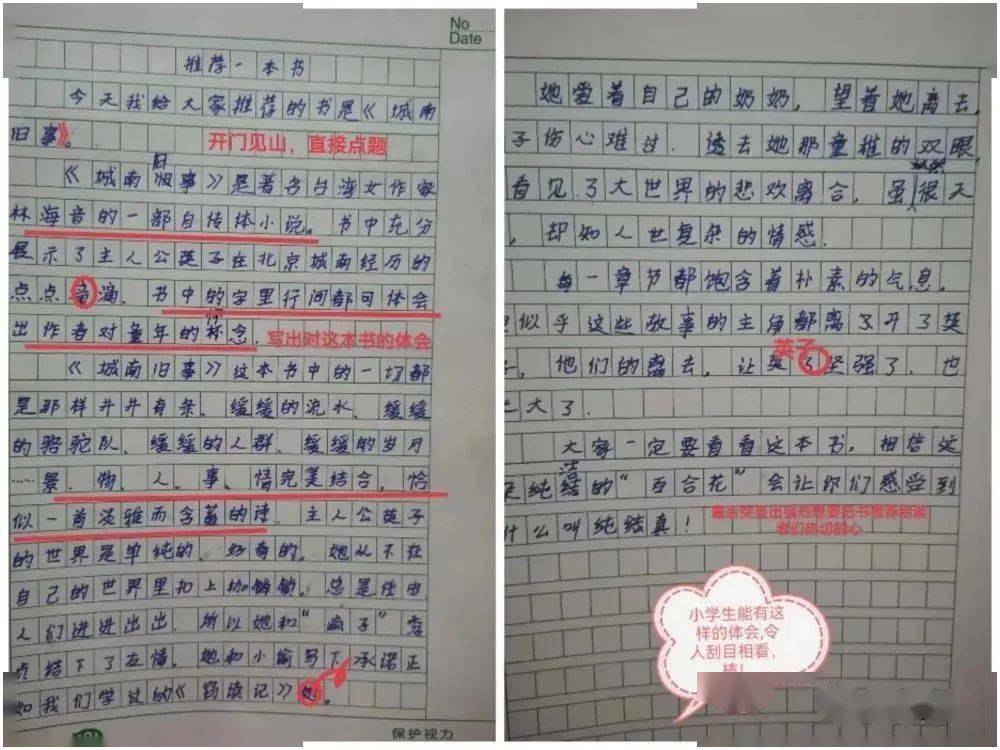 No
Date
推荐一本书
今天我给大家推荐的书是《城南
旧事》。
开门见山，直接点题
《城南旧事》是著名台湾女作家
林海音的一部自传体小说。书中充分
展示了主人公英子在北京城南经历的
点点滴。书中的字里行间都可体会
出作者对童年的怀念.
写出对这本书的体会
《城南旧事》这本书中的一切都
是那样井井有条、缓缓的流水、缓缓
的骆驼队、缓缓的人群、缓缓的岁月
……景、物、人、事、情完美结合，恰
似一首淡雅而含蓄的诗.主人公英子
的世界是单纯的、好奇的。她从不在
自己的世界里扣上枷锁.总是任由
人们进进出出.所以她和“疯子”秀
点结下了友情，她和小偷写下承诺正
如我们学过的《窃读记》
保护视力
她爱着自己的奶奶，望着她离去，
子伤心难过.透去她那童稚的双眼
看见了大世界的悲欢离合，虽很天
，却知人世复杂的情感.
每一章节都饱含着朴素的气息，
似乎这些故事的主角都离了开了英
英子
，他们的离去，让英了坚强了.也
大了.
大家一定要看看这本书，相信这
纯洁的“百合花”会让你们感受到
什么叫纯结真！
最后突显出强烈想要把书推荐给读
者们热切的心
小学生能有这
样的体会,令
人刮目相看，
棒！